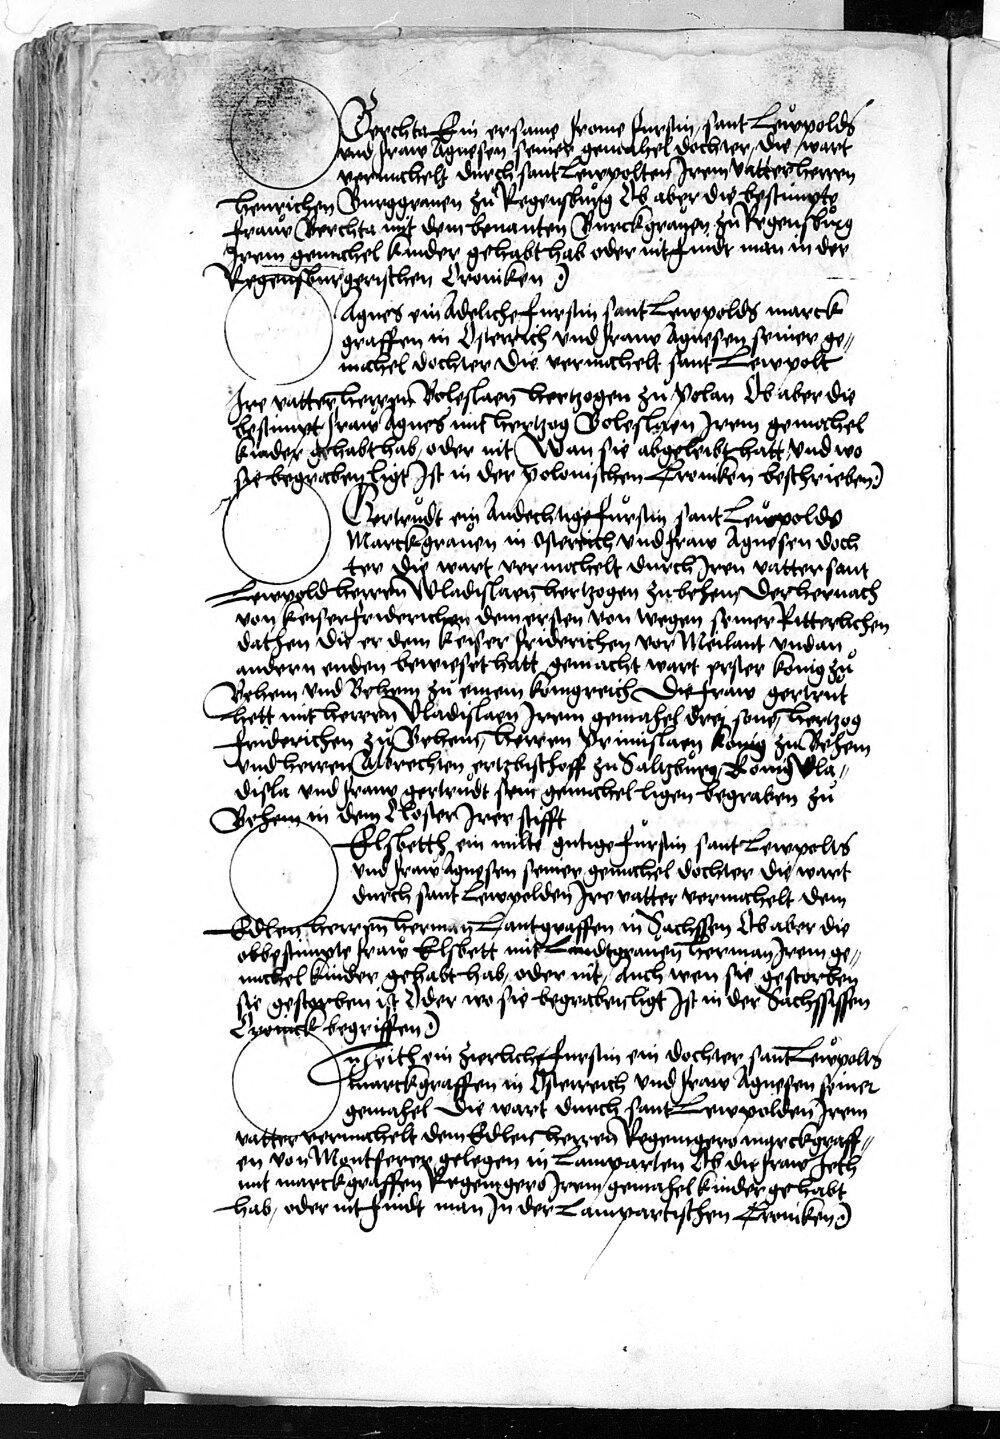 Berchta Ein ersame frome furstin, sant Lewpolds
vnd fraw Agnesen seiner gemahel dochter, die wart
vermachelt durch sant Lewpolten Irem vatter herren
henrichen Burggrauen zů Regensburg Ob aber die bestimpte
fraw Berchta mit dem benanten Burckgrauen zů Regensburg
Irem gemachel kinder gehabt hab oder nit findt man in der
Regenspurgerischen Croniken
Agnes ein Adeliche furstin sant Lewpolds marck
graffen in Osterrich vnd fraw Agnesen seiner ge„
machel dochter Die vermachelt sant Lewpolt
Ire vatter herren Boleslaen hertzogen zu Polan Ob aber die
bestimpt fraw Agnes mit hertzog Boleslaen Irem gemachel
kinder gehabt hab, oder nit Wan sie abgeleibt hatt vnd wo
sie begraben ligt Ist in der polonischen Croniken beschrieben
Gertrudt ein Andechtige furstin sant Lewpolds
Marckgrauen in Osterrich vnd fraw Agnesen doch
ter die wart vermachelt durch Iren vatter sant
Lewpold herren Wladislaen hertzogen zu behem Der hernach
von keiser friderichen dem ersten von wegen seiner Ritterlichen
dathen die er dem keiser friderichen vor Meilant vnd an
andern enden beweiset hatt gemacht wart erster konig zů
Behem vnd Behem zu einem konigreich Die fraw gertrut
hett mit herren Vladislaen Irem gemahel drei sone, hertzog
friderichen zů Behem, herren Primislaen konig zu Behem
vnd herren Albrechten ertzbischoff zu Saltzburg, Konig Vla„
disla vnd fraw gertrudt sein gemachel ligen begraben zů
Behem in dem Closter Irer stifft
Elsbetth ein milte gutige furstin sant Lewpolts
vnd fraw Agnesen seiner gemachel dochter die wart
durch sant Lewpolden Ire vatter vermachelt dem
Edlen herren herman Lantgraffen in Sachssen Ob aber die
obbestimpte fraw Elsbett mit Landtgrauen herman Irem ge„
machel kinder gehabt hab, oder nit, Auch wen sie gestorben
sie gestorben ist Oder wo sie begraben ligt Ist in der Sachssissen
Cronick begriffen
ein zierliche furstin ein dochter sant Lewpolts
marckgraffen in Osterreich vnd fraw Agnesen seiner
gemahel Die wart durch sant Lewpolden Irem
vatter vermachelt dem Edlen herren Regemgero marckgraff„
en von Montferer gelegen in Lamparten Ob die fraw
mit marckgraffen Regemgero Irem gemahel kinder gehabt
hab, oder nit findt man In der Lampartischen Croniken